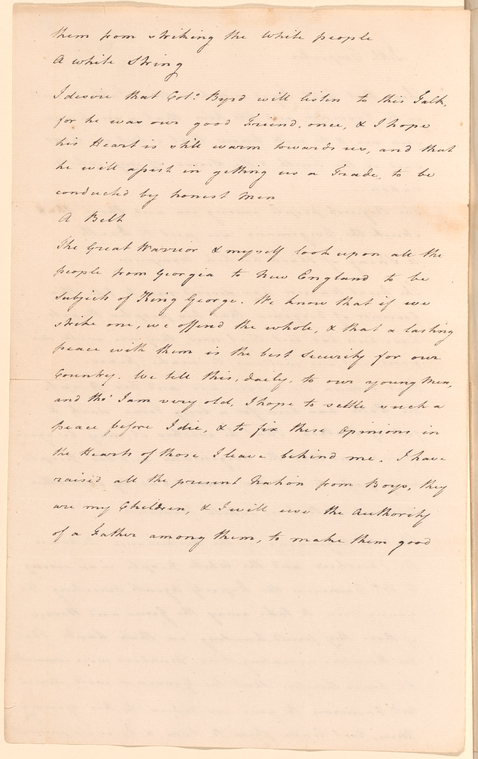 them from striking the white people
A white String
I desire that Colo. Byrd will listen to this Talk,
for he was our good Friend, once, & I hope
his Heart is still warm towards us, and that
he will assist in getting us a Trade, to be
conducted by honest Men
A Belt
The Great Warrior & myself look upon all the
people from Georgia to New England to be
subjects of King George. We know that if we
strike one, we offend the whole, & that a lasting
peace with them is the best Security for our
Country. We tell this, daily, to our young Men,
and tho' I am very old, I hope to settle such a
peace before I die, & to fix these Opinions in
the Hearts of those I leave behind me. I have
raised all the present Nation from Boys, they
are my Children, & I will use the Authority
of a Father among them, to make them good